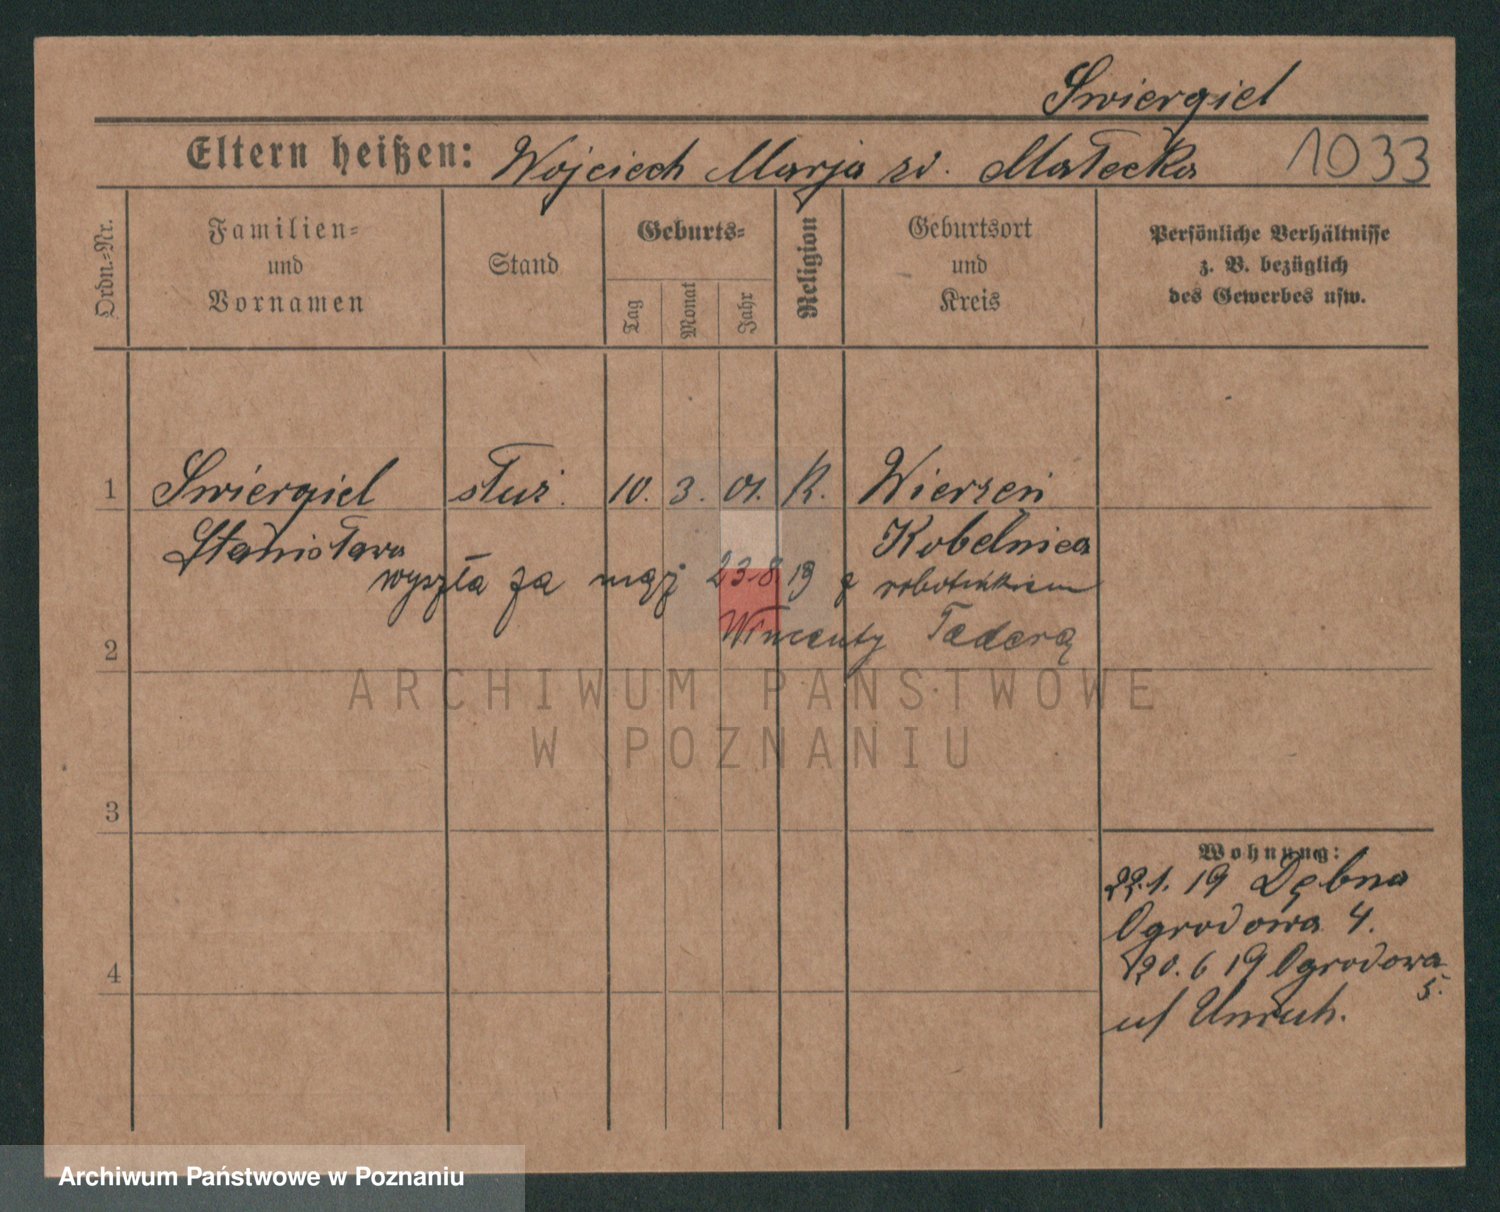 Swiergiel
Eltern heißen: Wojciech Marja zd. Małecka 1033
Ordn.-Nr.
Familien- und Vornamen
Stand
Geburts-
Tag
Monat
Jahr
Religion
Geburtsort und Kreis
Persönliche Verhältnisse
z. B. bezüglich
des Gewerbes usw.
1 Swiergiel służ. 10. 3. 01. K. Wierzeń
Stanisława Kobelnica
wyszła za mąż 23.8 19 z robotnikiem
Wincenty
2
3
4
Wohnung:
22.1. 19 Dębna
Ogrodowa 4.
20. 6 19 Ogrodowa
5.
u/ Unruh.
ARCHIWUM PAŃSTWOWE
W POZNANIU
Archiwum Państwowe w Poznaniu